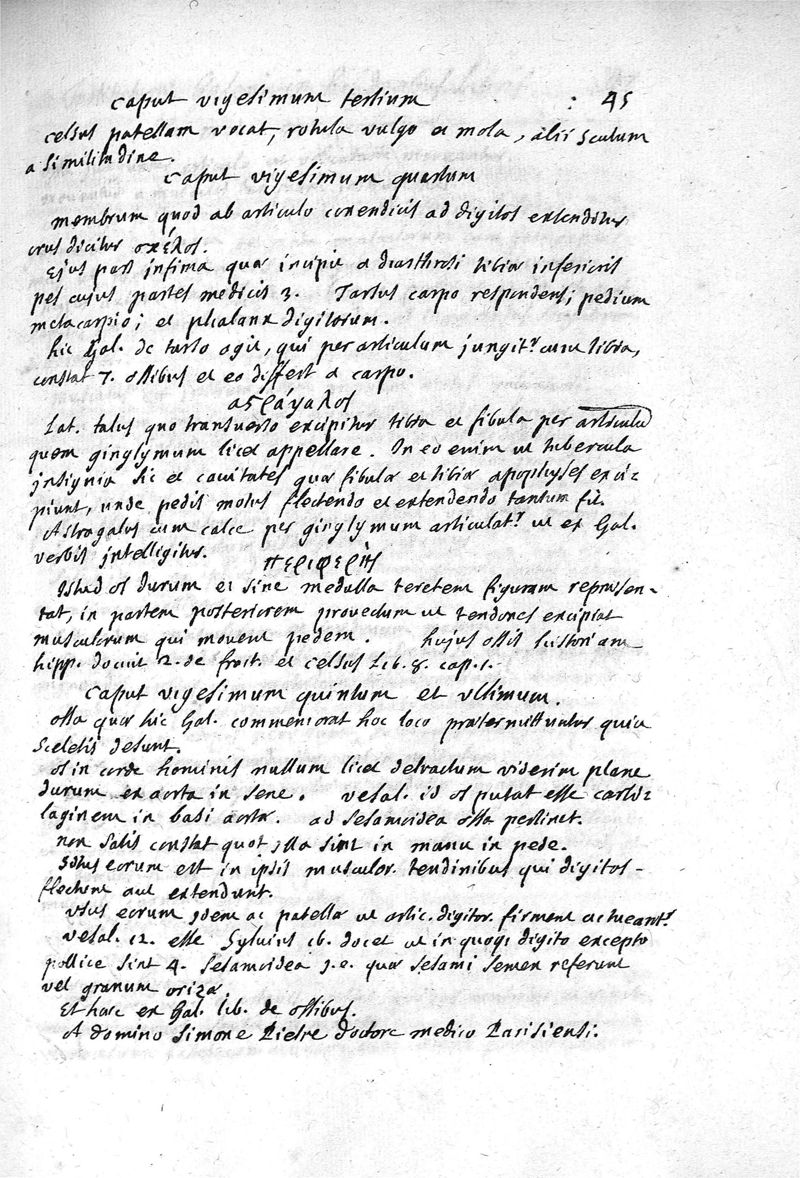 caput vigesimum tertium : 45
celsus patellam vocat, rotula vulgo et mola, alii scutum
a similitudine.
caput vigesimum quartum
membrum quod ab articulo coxendicis ad digitos extenditur
crus dicitur σκέλος.
Ejus pars infima quæ incipit a diarthrosi tibiæ inferioris
pes cujus partes medicis 3. Tarsus carpo respondens; pedium
metacarpio; et phalanx digitorum.
hic Gal. de tarso agit, qui per articulum jungitr cum tibia,
constat 7. ossibus et eo differt a carpo.
αςράγαλος
Lat. talus quo transverso excipitur tibia et fibula per articulū
quem ginglymum licet appellare. In eo enim ut tubercula
insignia sic et cavitates quæ fibulæ et tibiæ apophyses exci=
piunt, unde pedis motus flectendo et extendendo tantum fit.
Astragalus cum calce per ginglymum articulatr ut ex Gal.
verbis intelligitur.
περιφερὴς
Istud os durum et sine medulla teretem figuram repræsen-
tat, in partem posteriorem provectum ut tendones excipiat
musculorum qui movent pedem. hujus ossis historiam
hipp. docuit 2. de fract. et celsus Lib. 8. cap. 1.
caput vigesimum quintum et ultimum.
ossa quæ hic Gal. commemorat hoc loco prætermittuntur quia
sceletis desunt.
os in corde hominis nullum licet detractum viderim plane
durum ex aorta in sene. vesal. id os putat esse carti=
laginem in basi aortæ. ad sesamoidea ossa pertinet.
non satis constat quot illa sint in manu in pede.
situs eorum est in ipsis musculor. tendinibus qui digitos
flectunt aut extendunt.
usus eorum idem ac patellæ ut artic. digitor. firment ac tueantr.
vesal. 12. esse Sylvius 16. docet ut in quoqs digito excepto
pollice sint 4. sesamoidea i.e. quæ sesami semen referunt
vel granum orizæ.
Et hæc ex Gal. lib. de ossibus.
A domino Simone Pietre doctore medico Parisiensi.